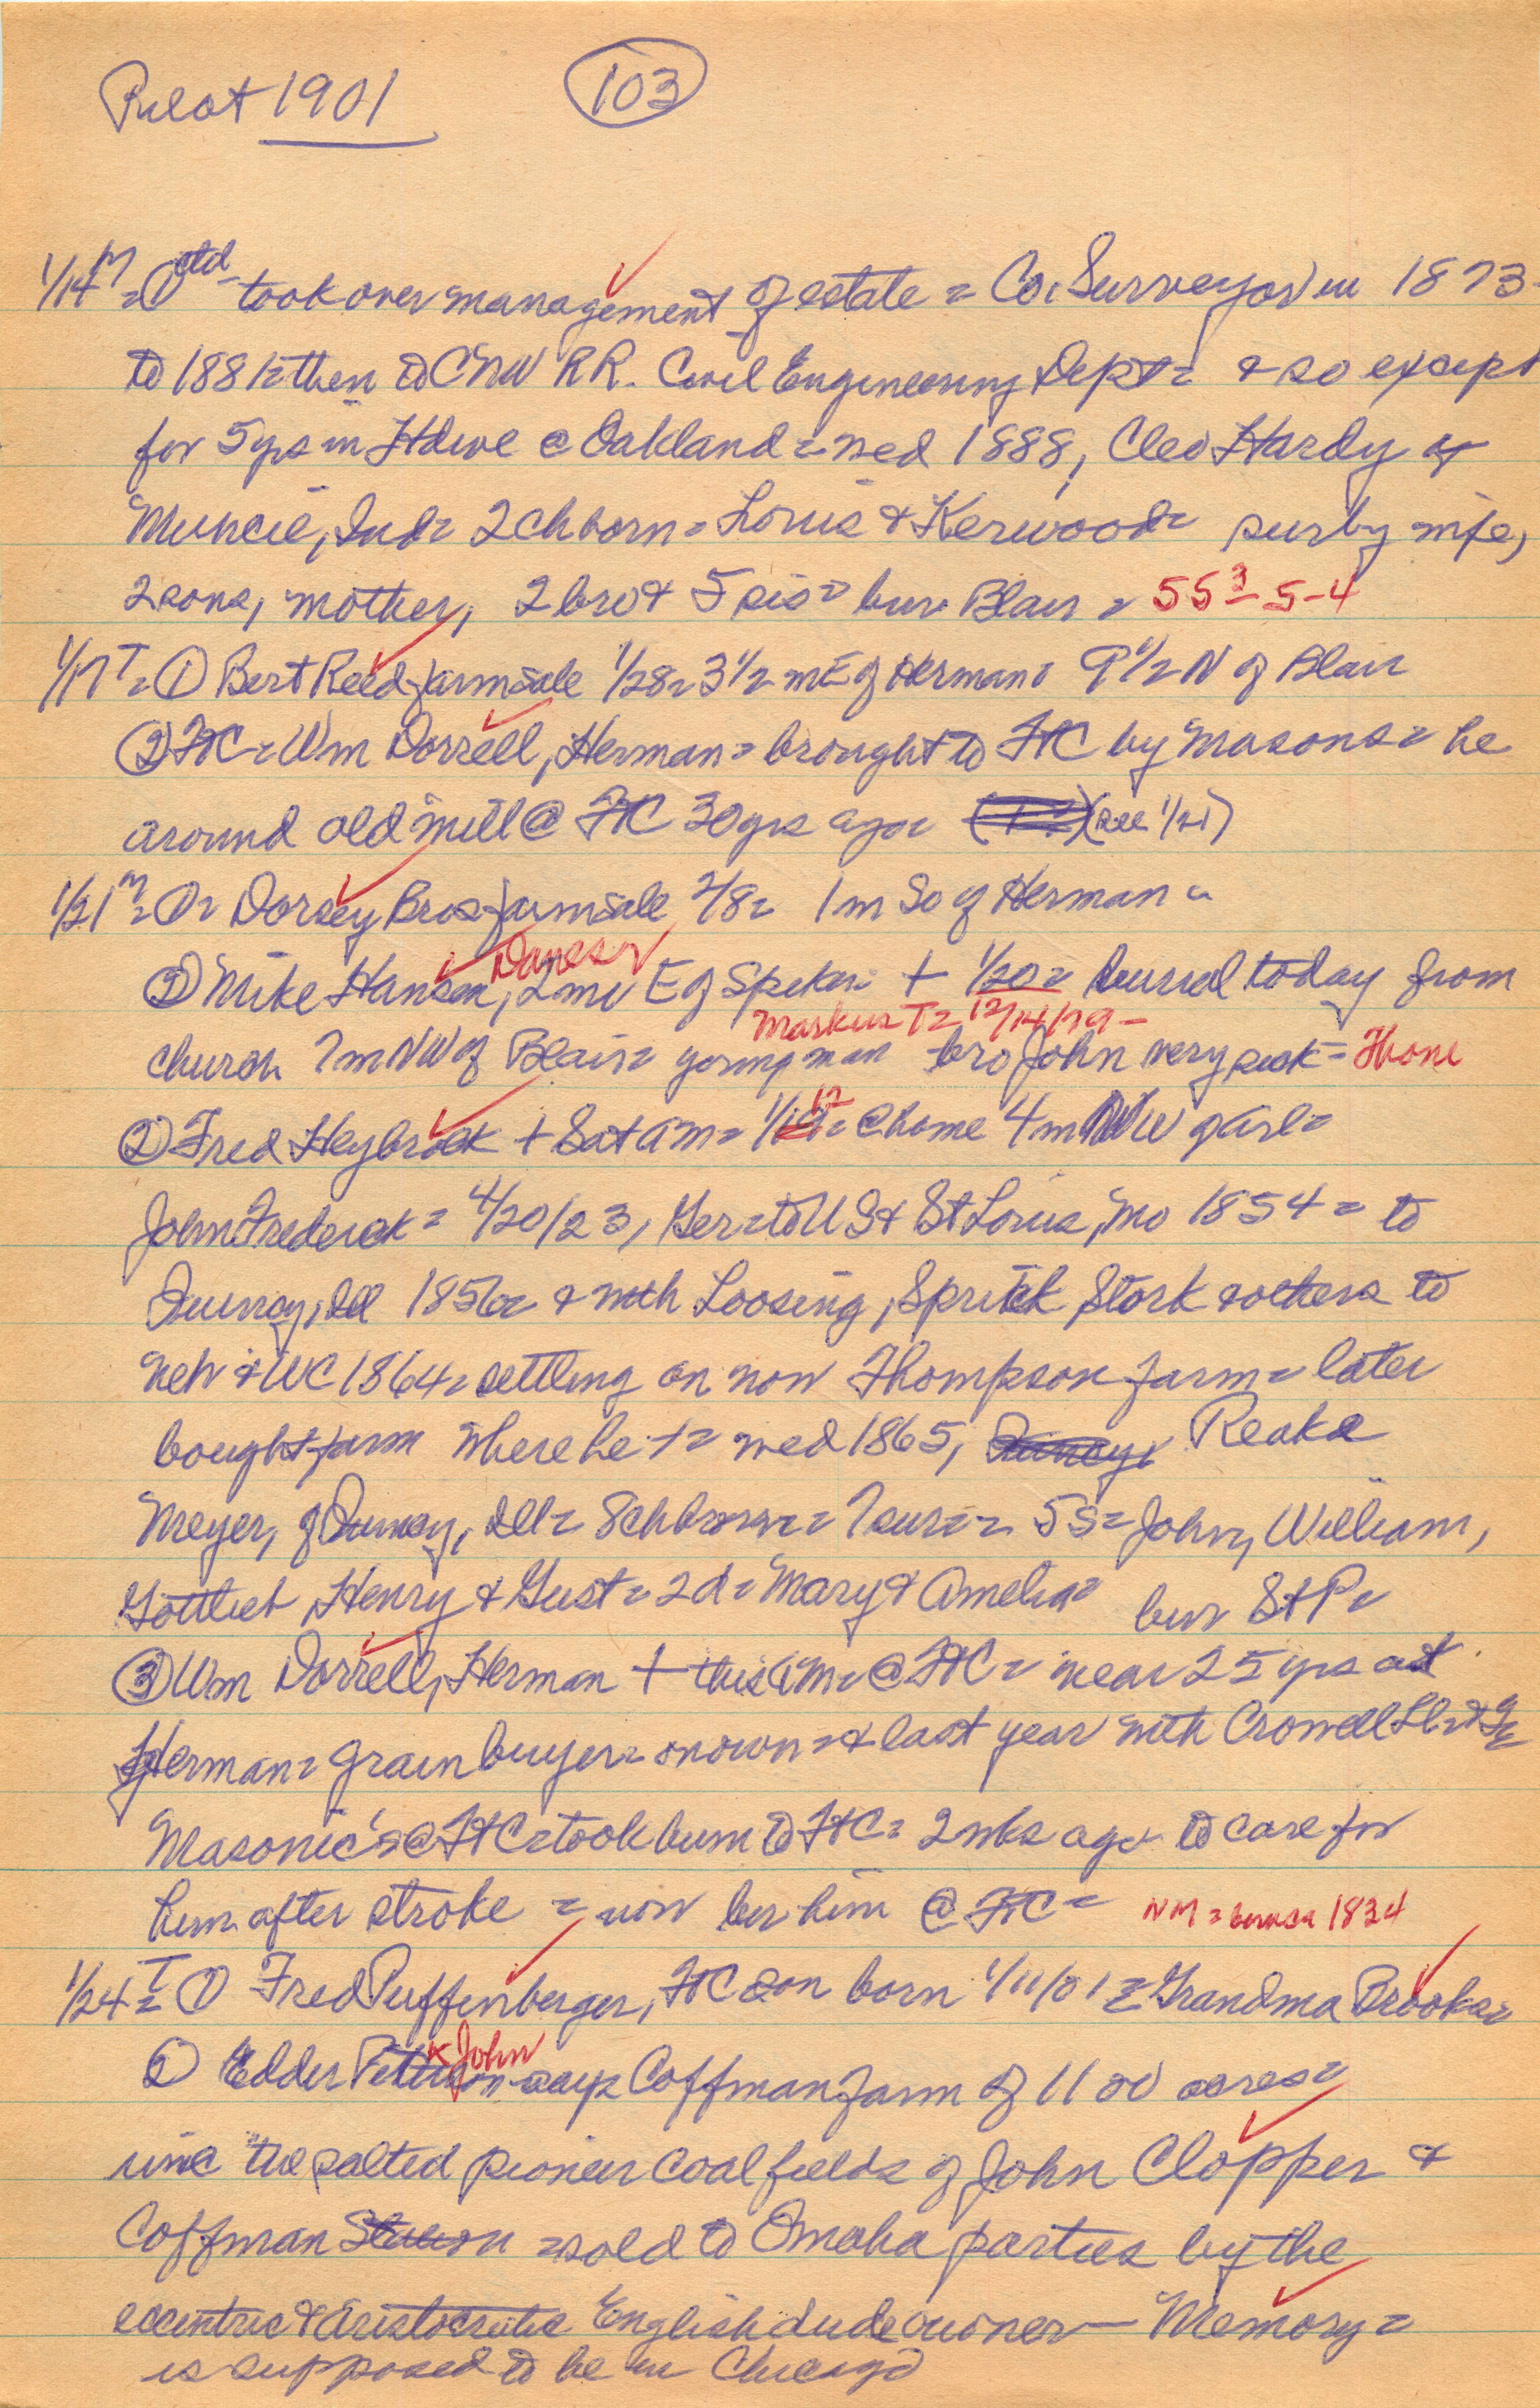 Pilot 1901 103
1/14 M = ① ctd took over management of estate = Co. Surveyor in 1873-
to 1881 = then to CNW RR. Civil Engineering Dept = & so except
for 5 yrs in Hdwe @ Oakland = wed 1888, Cleo Hardy of
Muncie, Ind = 2 ch born = Louis & Kerwood = sur by wife,
2 sons, mother, 2 bro & 5 sis = bur Blair = 55 3-5-4
1/17 T = ① Bert Reed farm sale 1/28 = 3 1/2 m E of Herman = 9 1/2 N of Blair
② FtC = Wm Dorrell, Herman = brought to FtC by Masons = he
around old mill @ FtC 30 yrs ago (see 1/21)
1/21 M = ① = Dorsey Bros farm sale 2/8 = 1 m So of Herman =
② Mike Hansen, 2 mi E of Spiker + 1/20 = buried today from
Markus T = 12/14/79 -
church 7 m NW of Blair = young man bro John very sick = Thone
② Fred Heybrock + Sat AM = 1/19 = @ home 4 m NW of Arl =
John Frederick = 4/20/23, Ger = to US & St Louis, Mo 1854 = to
Quincy, Ill 1856 = & with Loosing, Sprick, Stork & others to
Neb & WC 1864 = settling on now Thompson farm = later
bought farm where he + = wed 1865, Reake
Meyer, of Quincy, Ill = 8 ch born = 7 sur = 5 s = John, William,
Gottlieb, Henry & Gust = 2 d = Mary & Amelia = bur St P =
③ Wm Dorrell, Herman + this AM = @ FtC = near 25 yrs at
Herman = grain buyer = on own = & last year with Crowell
Masonic's @ FtC = took him to FtC = 2 wks ago to care for
him after stroke = now bur him @ FtC = NM = born 1834
1/24 T = ① Fred Puffenberger, FtC son born 1/11/01 = Grandma Brooks =
John
② Edder Peterson says Coffman farm of 1100 acres =
the salted pioneer coal fields of John Clopper &
Coffman = sold to Omaha parties by the
eccentric & aristocratic English dude owner — Memory =
is supposed to be in Chicago